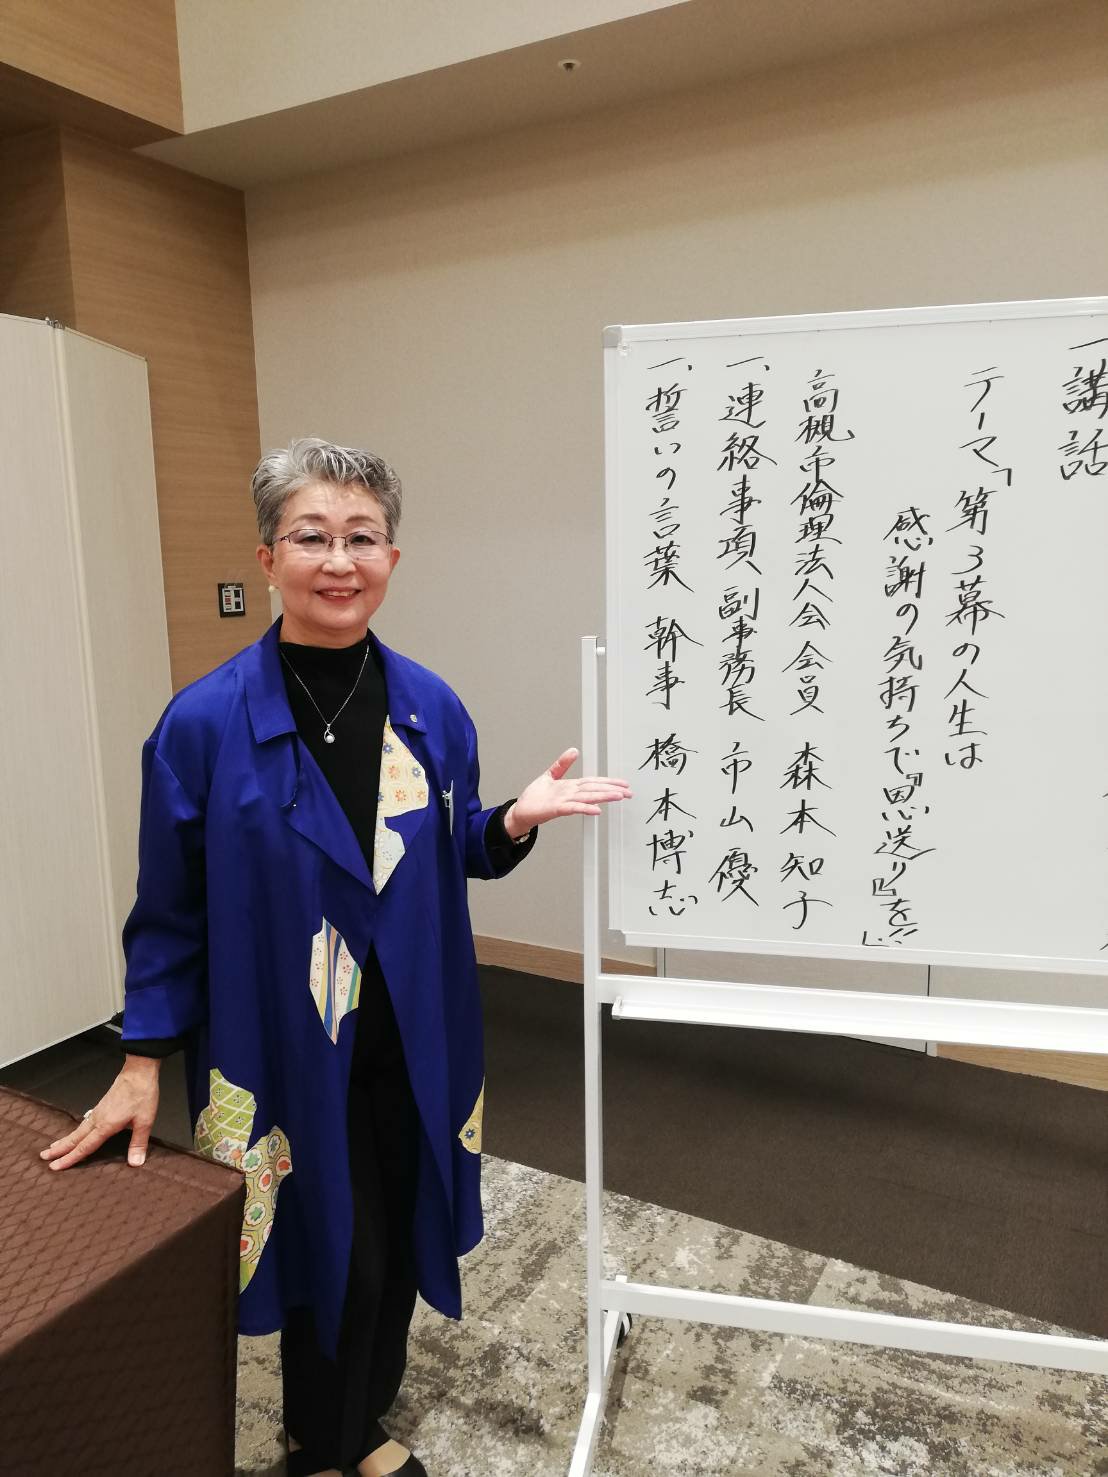 一、講話
テーマ「第3幕の人生は
感謝の気持ちで『恩送り』を!!」
高槻市倫理法人会 会員 森本 知子
一、連絡事項、副事務長 市山 優
一、誓いの言葉 幹事 橋本博志